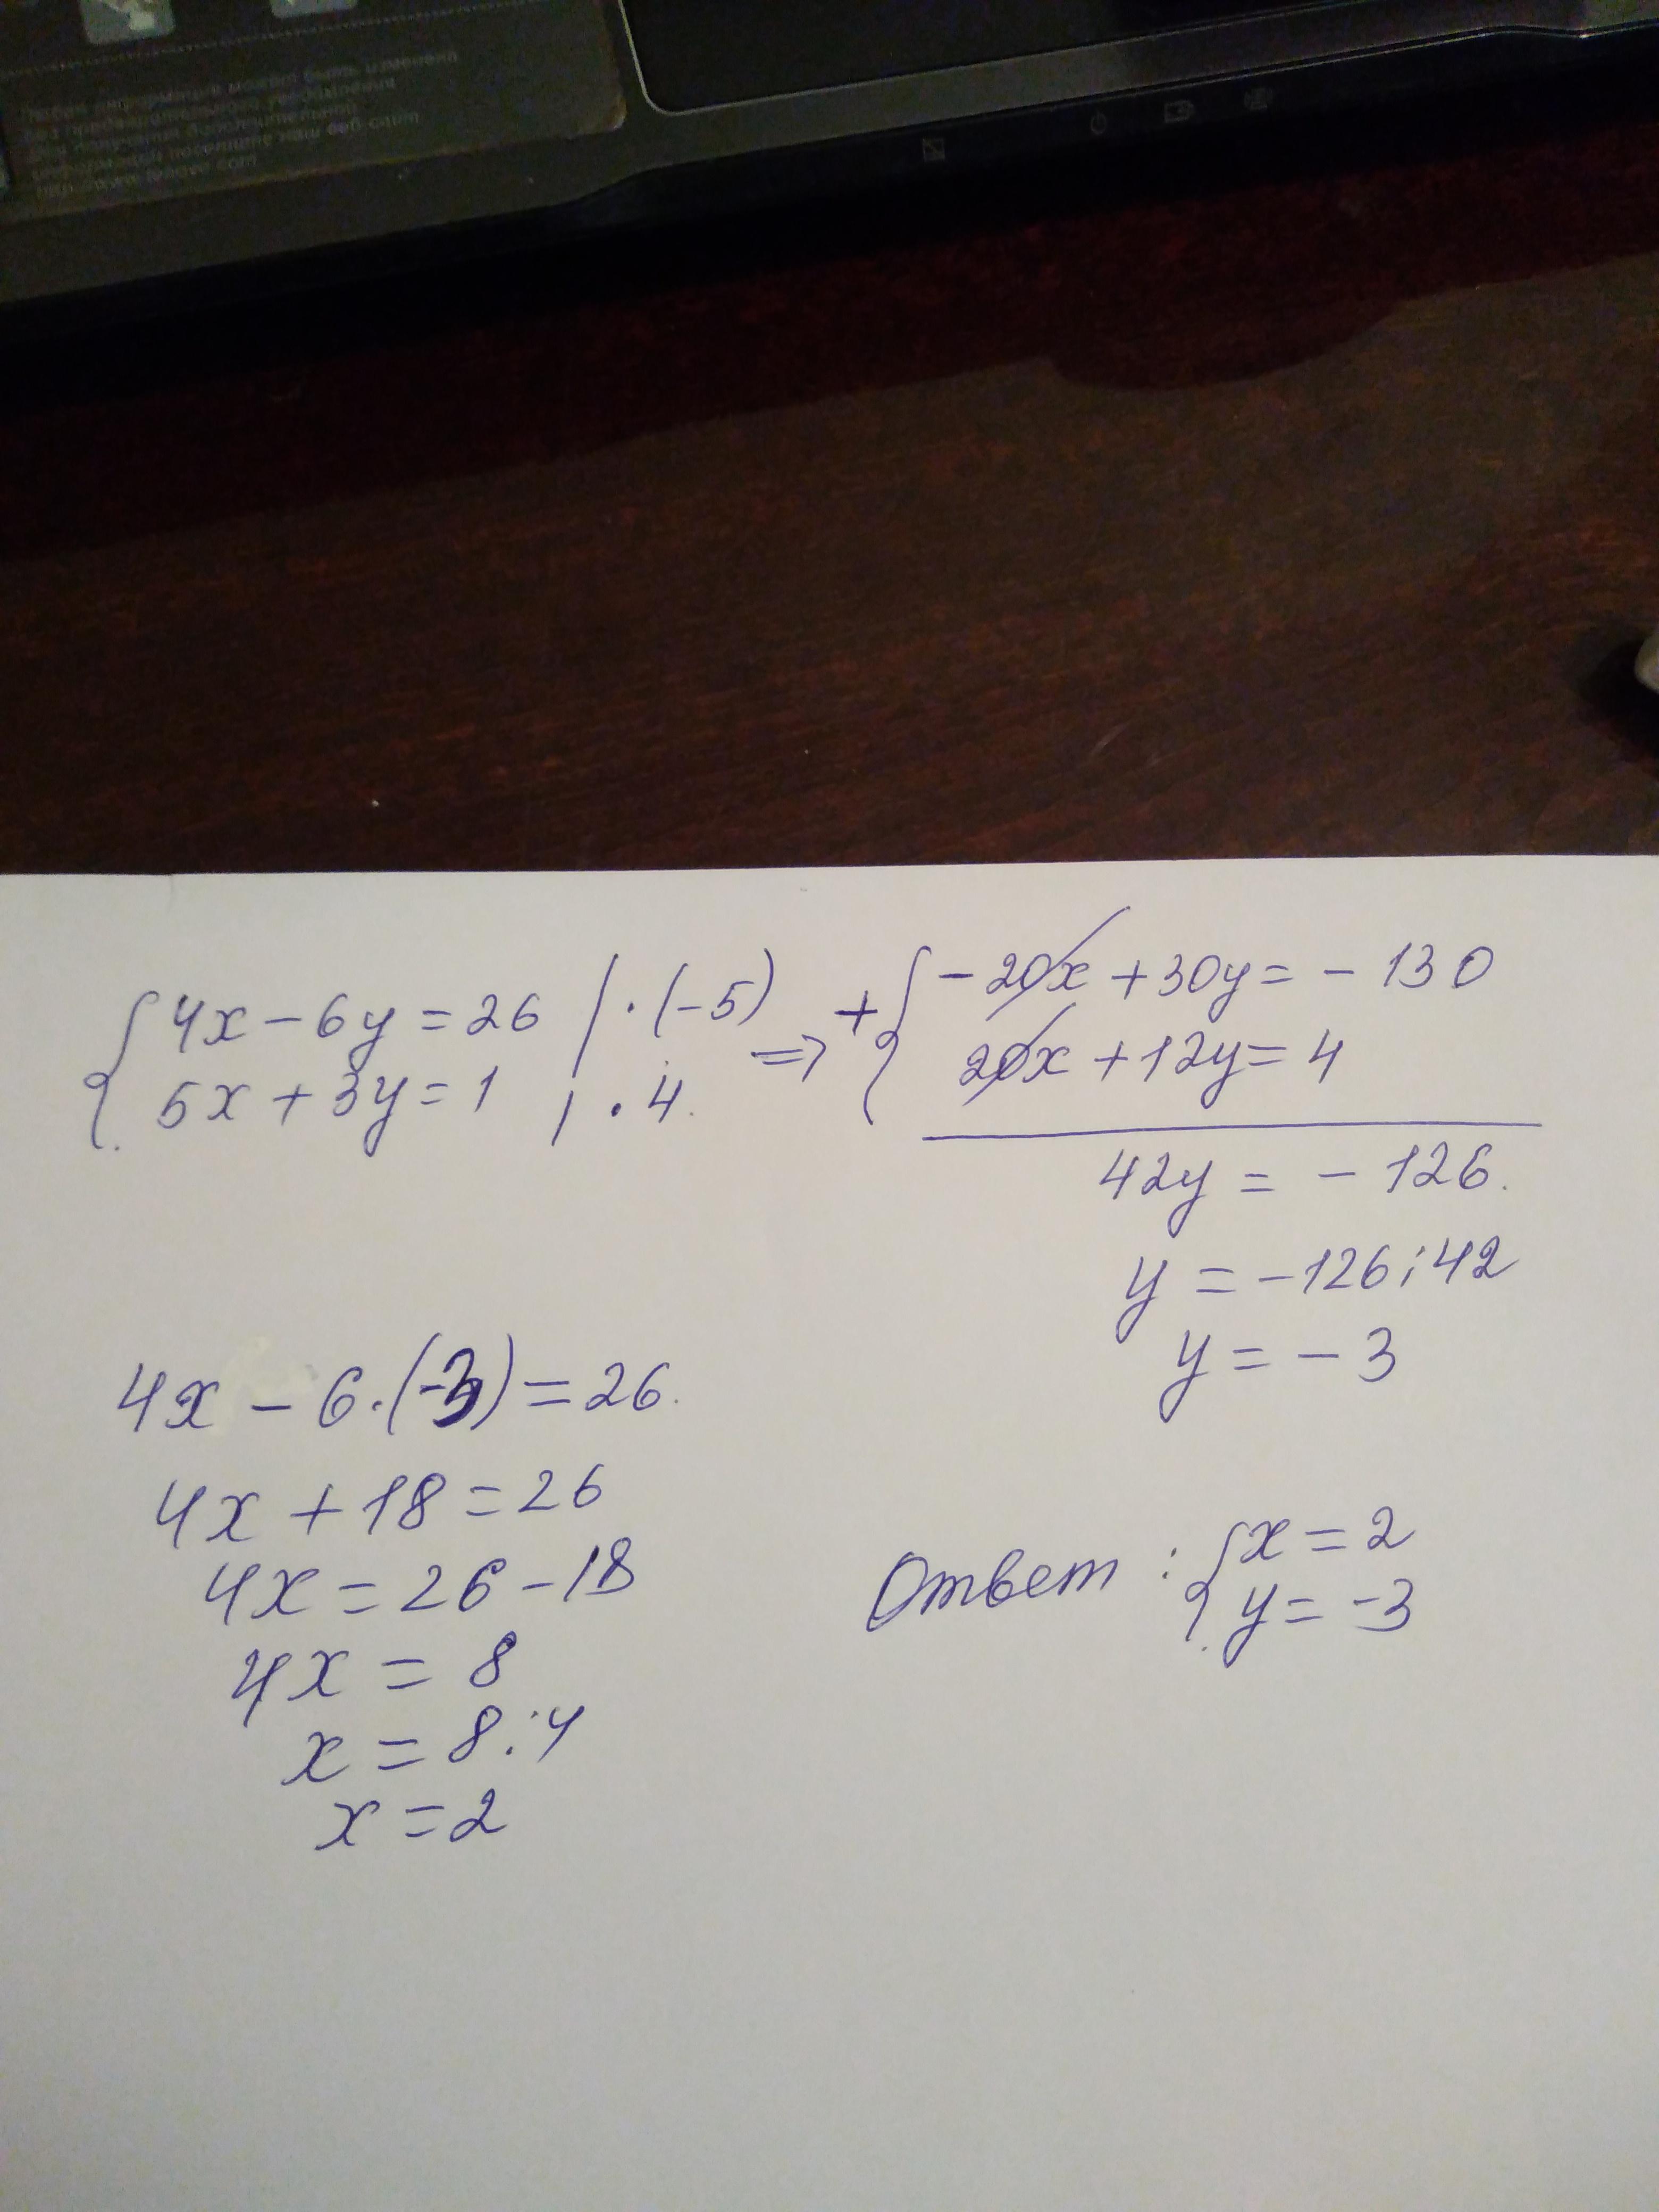 Любая информация может быть изменена
без предварительного уведомления
Для получения дополнительной
информации посетите наш веб-сайт
http://www.lenovo.com
{ 4x - 6y = 26 / · (-5)
5x + 3y = 1 / · 4
=> + { -20x + 30y = - 130
20x + 12y = 4
42y = - 126.
y = -126 : 42
y = - 3
4x - 6·(-3) = 26.
4x + 18 = 26
4x = 26 - 18
4x = 8
x = 8 : 4
x = 2
Ответ : { x = 2
y = -3